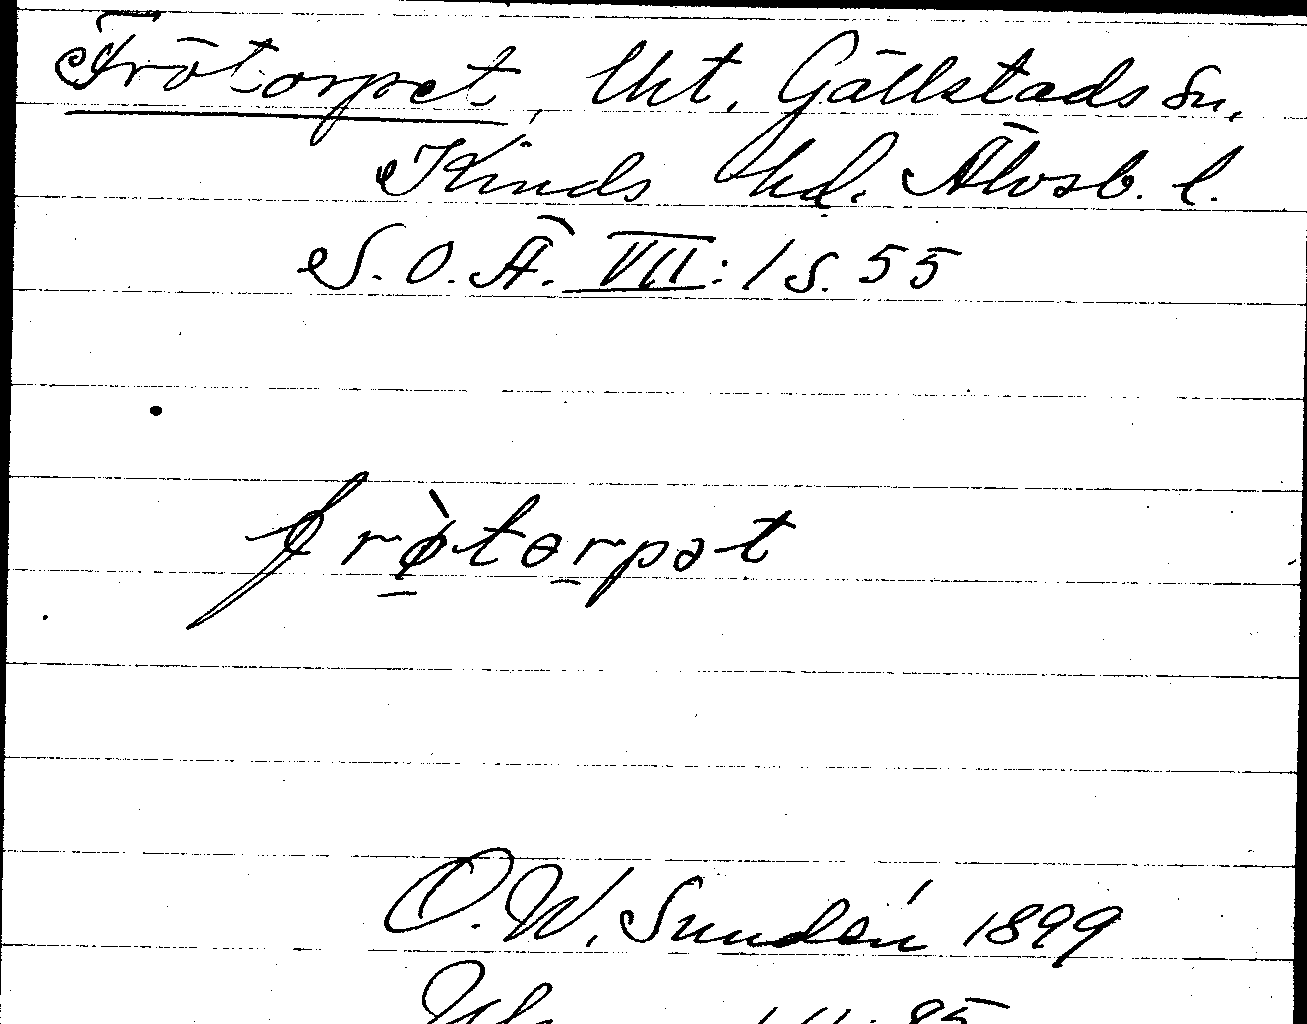 Frötorpet, lht. Gällstads sn.
Kinds hd. Älvsb. l.
S.O.Ä. VII: 1 s. 55
frø̀tɵrpət
O.W. Sundén 1899